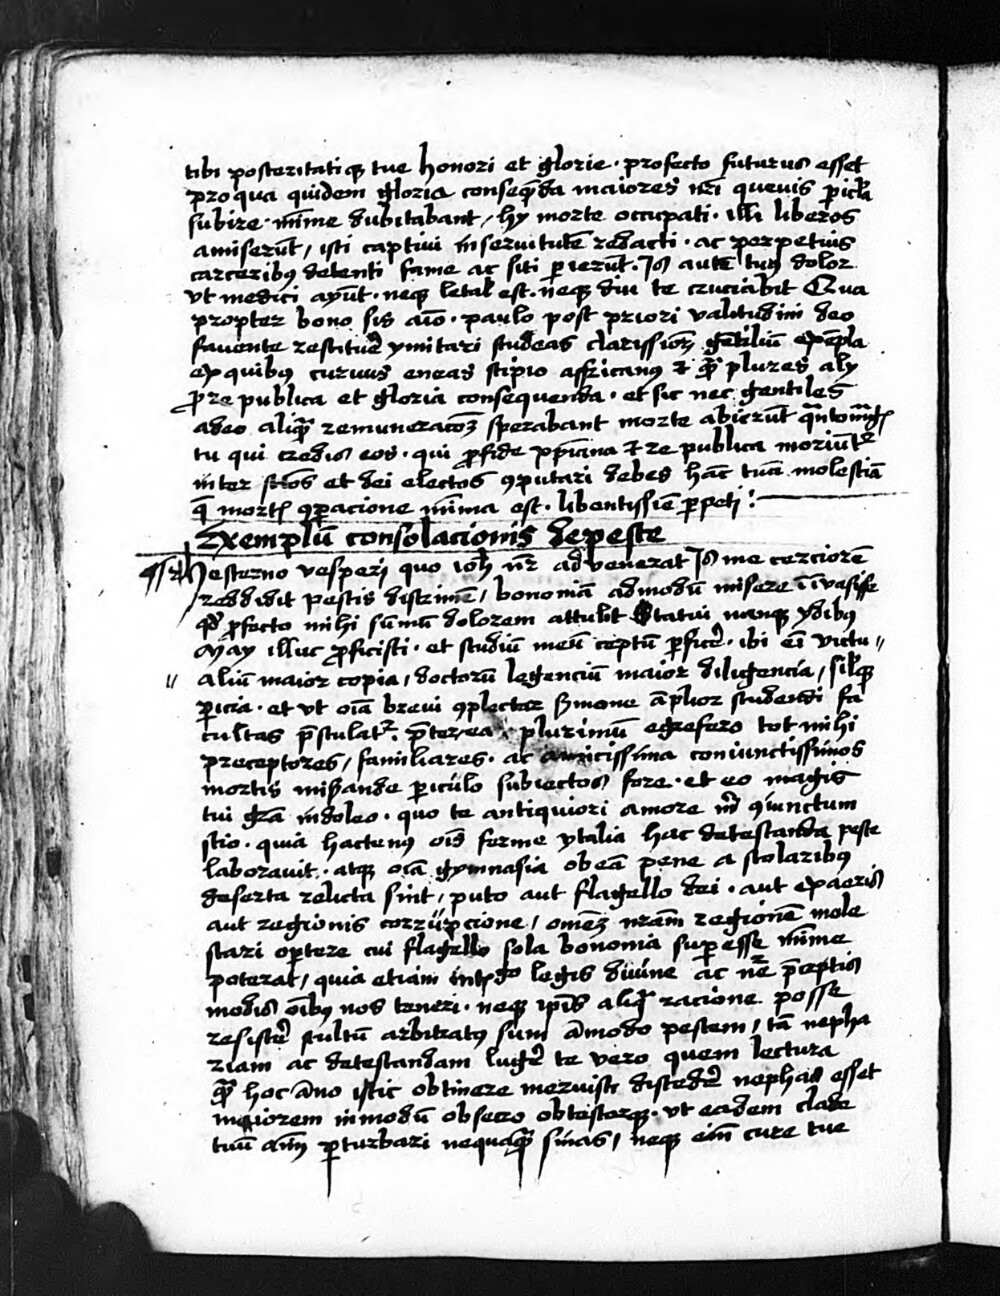 tibi posteritatiqꝫ tue honori et glorie · profecto futurus esset
pro qua quidem gloria conseqūda maiores nr̄i quevis pericl̄a
subire · mīme dubitabant / hy morte occupati · illi liberos
amiserūt / isti captivi in servitutē redacti · ac perpetuis
carceribꝰ detenti fame ac siti perierūt · Is autē tuꝰ dolor
vt medici ayūt · neqꝫ letal' est · neqꝫ diu te cruciabit Qua
propter bono sis aīo · paulo post priori valitudini deo
favente restituē ymitari studeas clarissiorꝫ gētiliū exēpla
ex quibꝰ curvus eneas scipio affricanꝰ et plures aly
pro re publica et gloria consequenda · et sic nec gentiles
adeo aliquā remuneracōꝫ sperabant morte abierūt
tu qui credis eos · qui ꝓ fide xp̄iana et re publica moriūt᷑
inter sc̄os et dei electos ꝯputari debes hāc tuā molestiā
q̄ mort' ꝯparacione mīma est · libentissīe perpeti :
Exemplū consolacionis de peste
Hesterno vesperi quo ioh' nr̄ advenerat Is me cerciorē
reddidit pestis discrimē / bonomā admodū misere īvasisse
qd' ꝓfecto mihi sūmū dolorem attulit Statui namqꝫ ydibꝰ
May illuc ꝓficisti · et studiū meū ceptū ꝑficē · ibi eī victu〃
〃 aliū maior copia / doctorū legenciū maior diligencia / sil'qꝫ
pericia · et vt oīa brevi ꝯplectar ẜmone āplior studendi fa
cultas p̄stulat᷑ · p̄terea plurimū egrefero tot mihi
preceptores / familiares · ac amicissima coniunctissimos
mortis miserande periculo subiectos fore · et eo magis
tui grā indoleo · quo te antiquiori amore m̄ ꝯiunctum
scio · quia hactenꝰ oīs ferme ytalia hac detestanda peste
laboravit · atqꝫ oīa gymnasia ob eā pene a scolaribꝰ
deserta relicta sint / puto aut flagello dei · aut ex aeris
aut regionis corrupcione / omēꝫ nr̄am regionē mole
stari oꝑtere cui flagello sola bonomia superesse mīme
poterat / quia etiam legis divine ac p̄ceptis
modis oībꝰ nos teneri · neqꝫ ip̄is aliq̄ racione posse
resistē stultū arbitratꝰ sum āmodo pestem / tā nepha
riam ac detestandam lugē te vero quem lectura
hoc āno istic obtinere meruisti discedē nephas esset
maiorem in modū obsecro obtestorqꝫ · vt eadem clade
tuū aīm perturbari nequaquā sinas / neqꝫ eīm cure tue